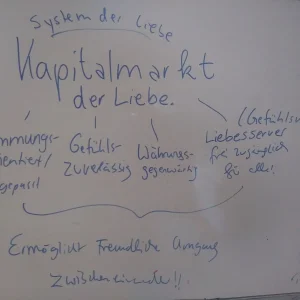 System der Liebe
Kapitalmarkt
der Liebe.
mmungs-
ientiert/
gepasst
Gefühls-
zuverlässig
Währungs-
gegenwärtig
(Gefühls
Liebesserver
frei zugänglich
für alle!
Ermöglicht Freundliche Umgang
zwischeneinander!!